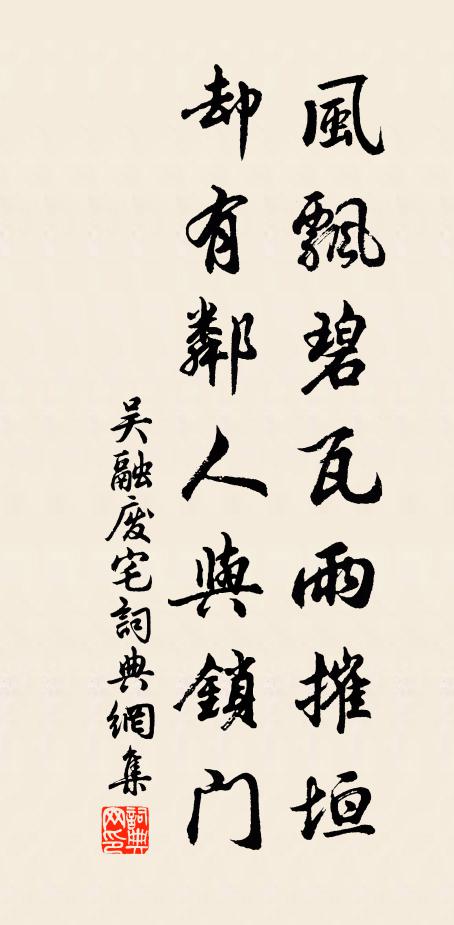 風飄碧瓦雨摧垣
却有鄰人與鎖門
吴融廢宅詞典網集
詞典網印